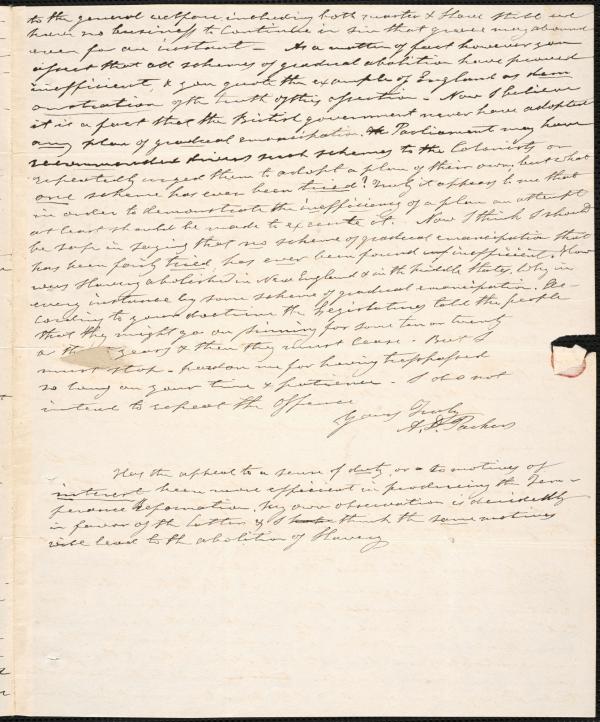 to the general welfare including both master & slave still we
have no business to continue in sin that grace may abound
even for an instant — As a matter of fact however you
assert that all schemes of gradual abolition have proved
inefficient, & you quote the example of England as dem
onstration of the truth of this assertion — Now I believe
it is a fact that the British government never have adopted
any plan of gradual emancipation. Parliament may have
recommended divers such schemes to the Colonists or
repeatedly urged them to adopt a plan of their own, but what
one scheme has ever been tried? Truly it appears to me that
in order to demonstrate the inefficiency of a plan an attempt
at least should be made to execute it. Now I think I should
be safe in saying that no scheme of gradual emancipation that
has been fairly tried, has ever been found inefficient. How
was Slavery abolished in New England & in the middle States, Why in
every instance by some scheme of gradual emancipation. Ac-
cording to your doctrine the Legislatures told the people
that they might go on sinning for some ten or twenty
or years & then they must cease. But I
must stop — pardon me for having trespassed
so long on your time & patience — I do not
intend to repeat the offence
Yours Truly
A. D. Parker
Has the appeal to a sense of duty, or to motives of
interest been more efficient in producing the Tem-
perance Reformation. My own observation is decidedly
in favor of the latter & I think the same motives
will lead to the abolition of Slavery